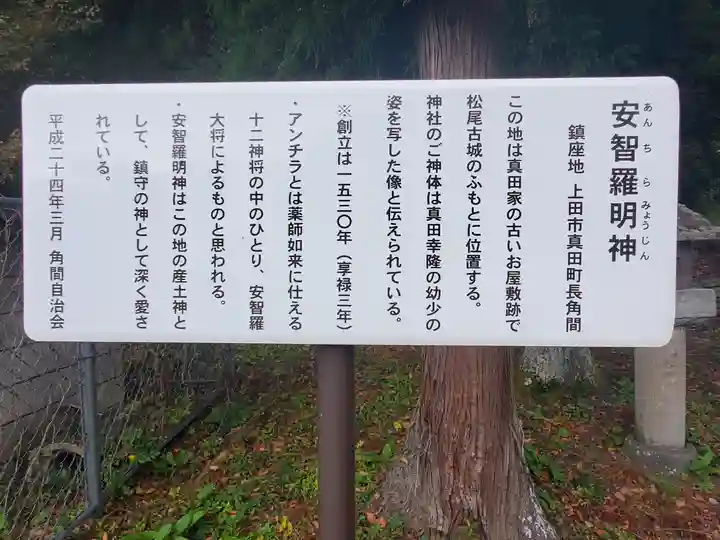 安智羅明神
あんちらみょうじん
鎮座地 上田市真田町長角間
この地は真田家の古いお屋敷跡で
松尾古城のふもとに位置する。
神社のご神体は真田幸隆の幼少の
姿を写した像と伝えられている。
※創立は一五三〇年（享禄三年）
・アンチラとは薬師如来に仕える
十二神将の中のひとり、安智羅
大将によるものと思われる。
・安智羅明神はこの地の産土神と
して、鎮守の神として深く愛さ
れている。
平成二十四年三月 角間自治会